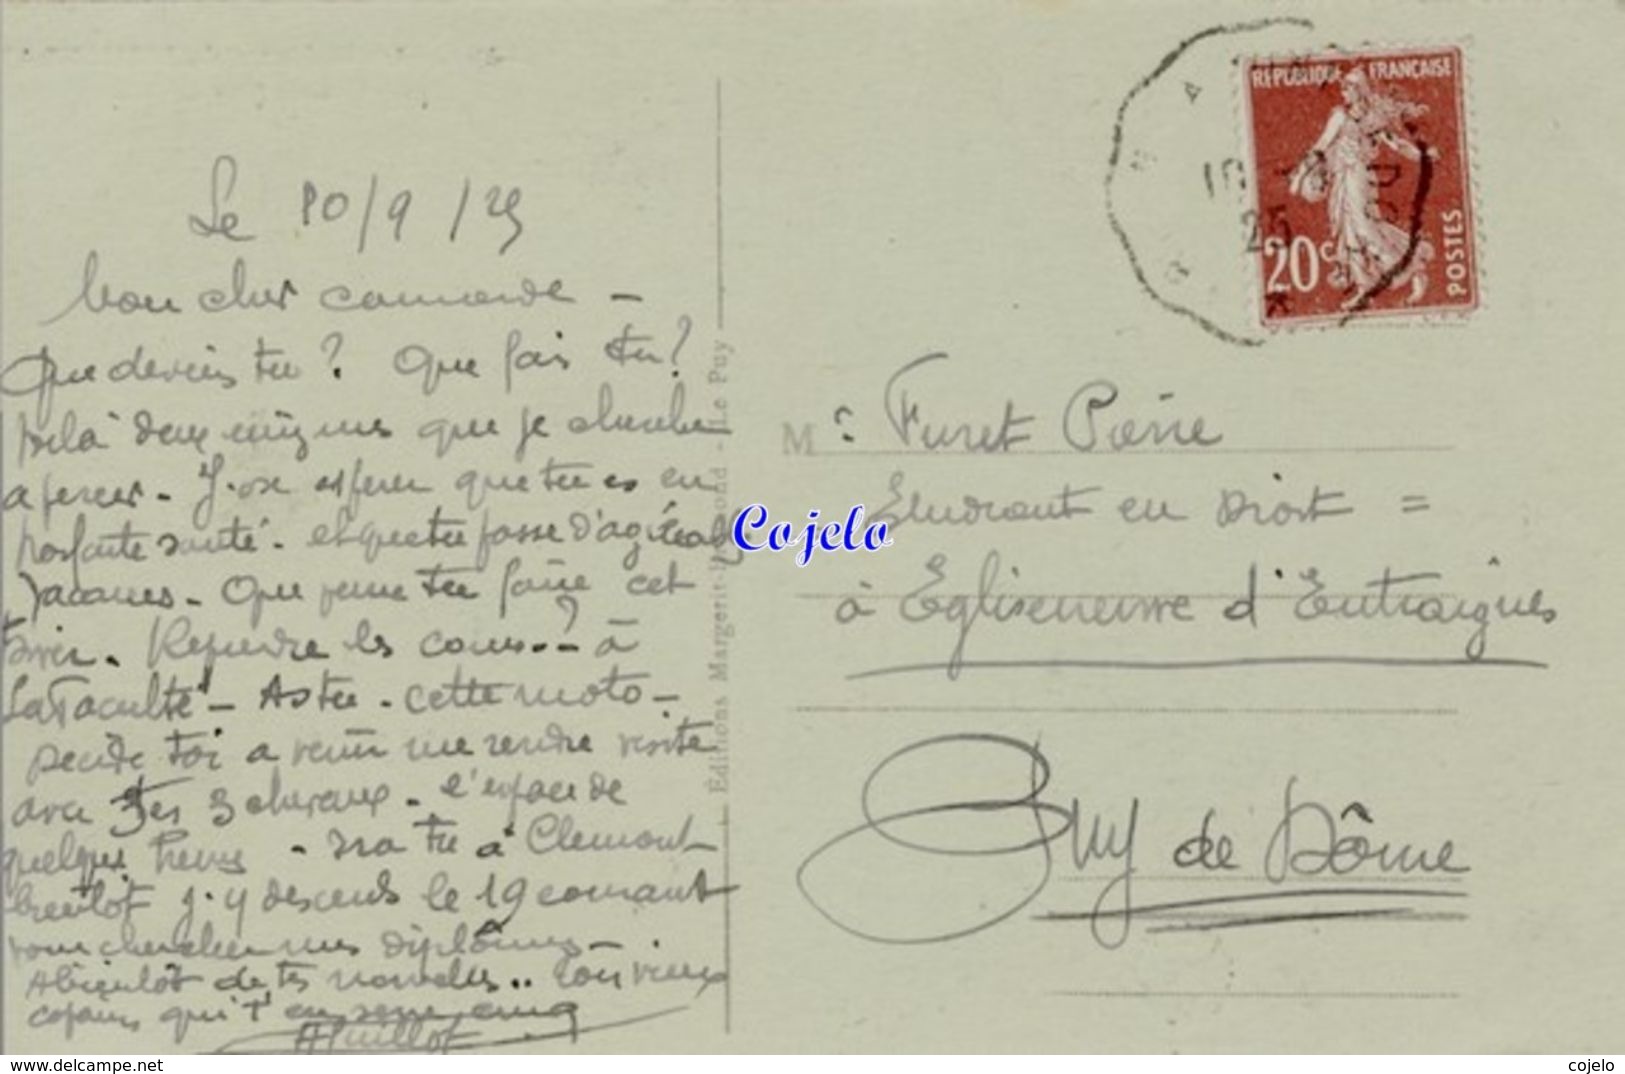 Le 10/9/25
Mon cher camarade -
Que deviens tu ? Que fais tu ?
Voilà deux énigmes que je cherche
a percer - J'ose espérer que tu es en
parfaite santé - et que tu passe d'agréables
vacances - Que pense tu faire cet
hiver - Reprendre les cours -- ? à
La Faculté - As tu - cette moto -
décide toi a venir me rendre visite
avec tes 3 chevaux - l'espace de
quelques heures - Ira tu à Clermont
bientôt j'y descends le 19 courant
pour chercher mes diplômes -
A bientôt de tes nouvelles .. Ton vieux
copain qui t'en serre cinq
Éditions Margerit- - Le Puy
REPUBLIQUE FRANÇAISE
20c
POSTES
25
Mr Furet Pierre
Etudiant en Droit =
à Egliseneuve d'Entraigues
Puy de Dôme
Cojelo
https://www.delcampe.net
cojelo